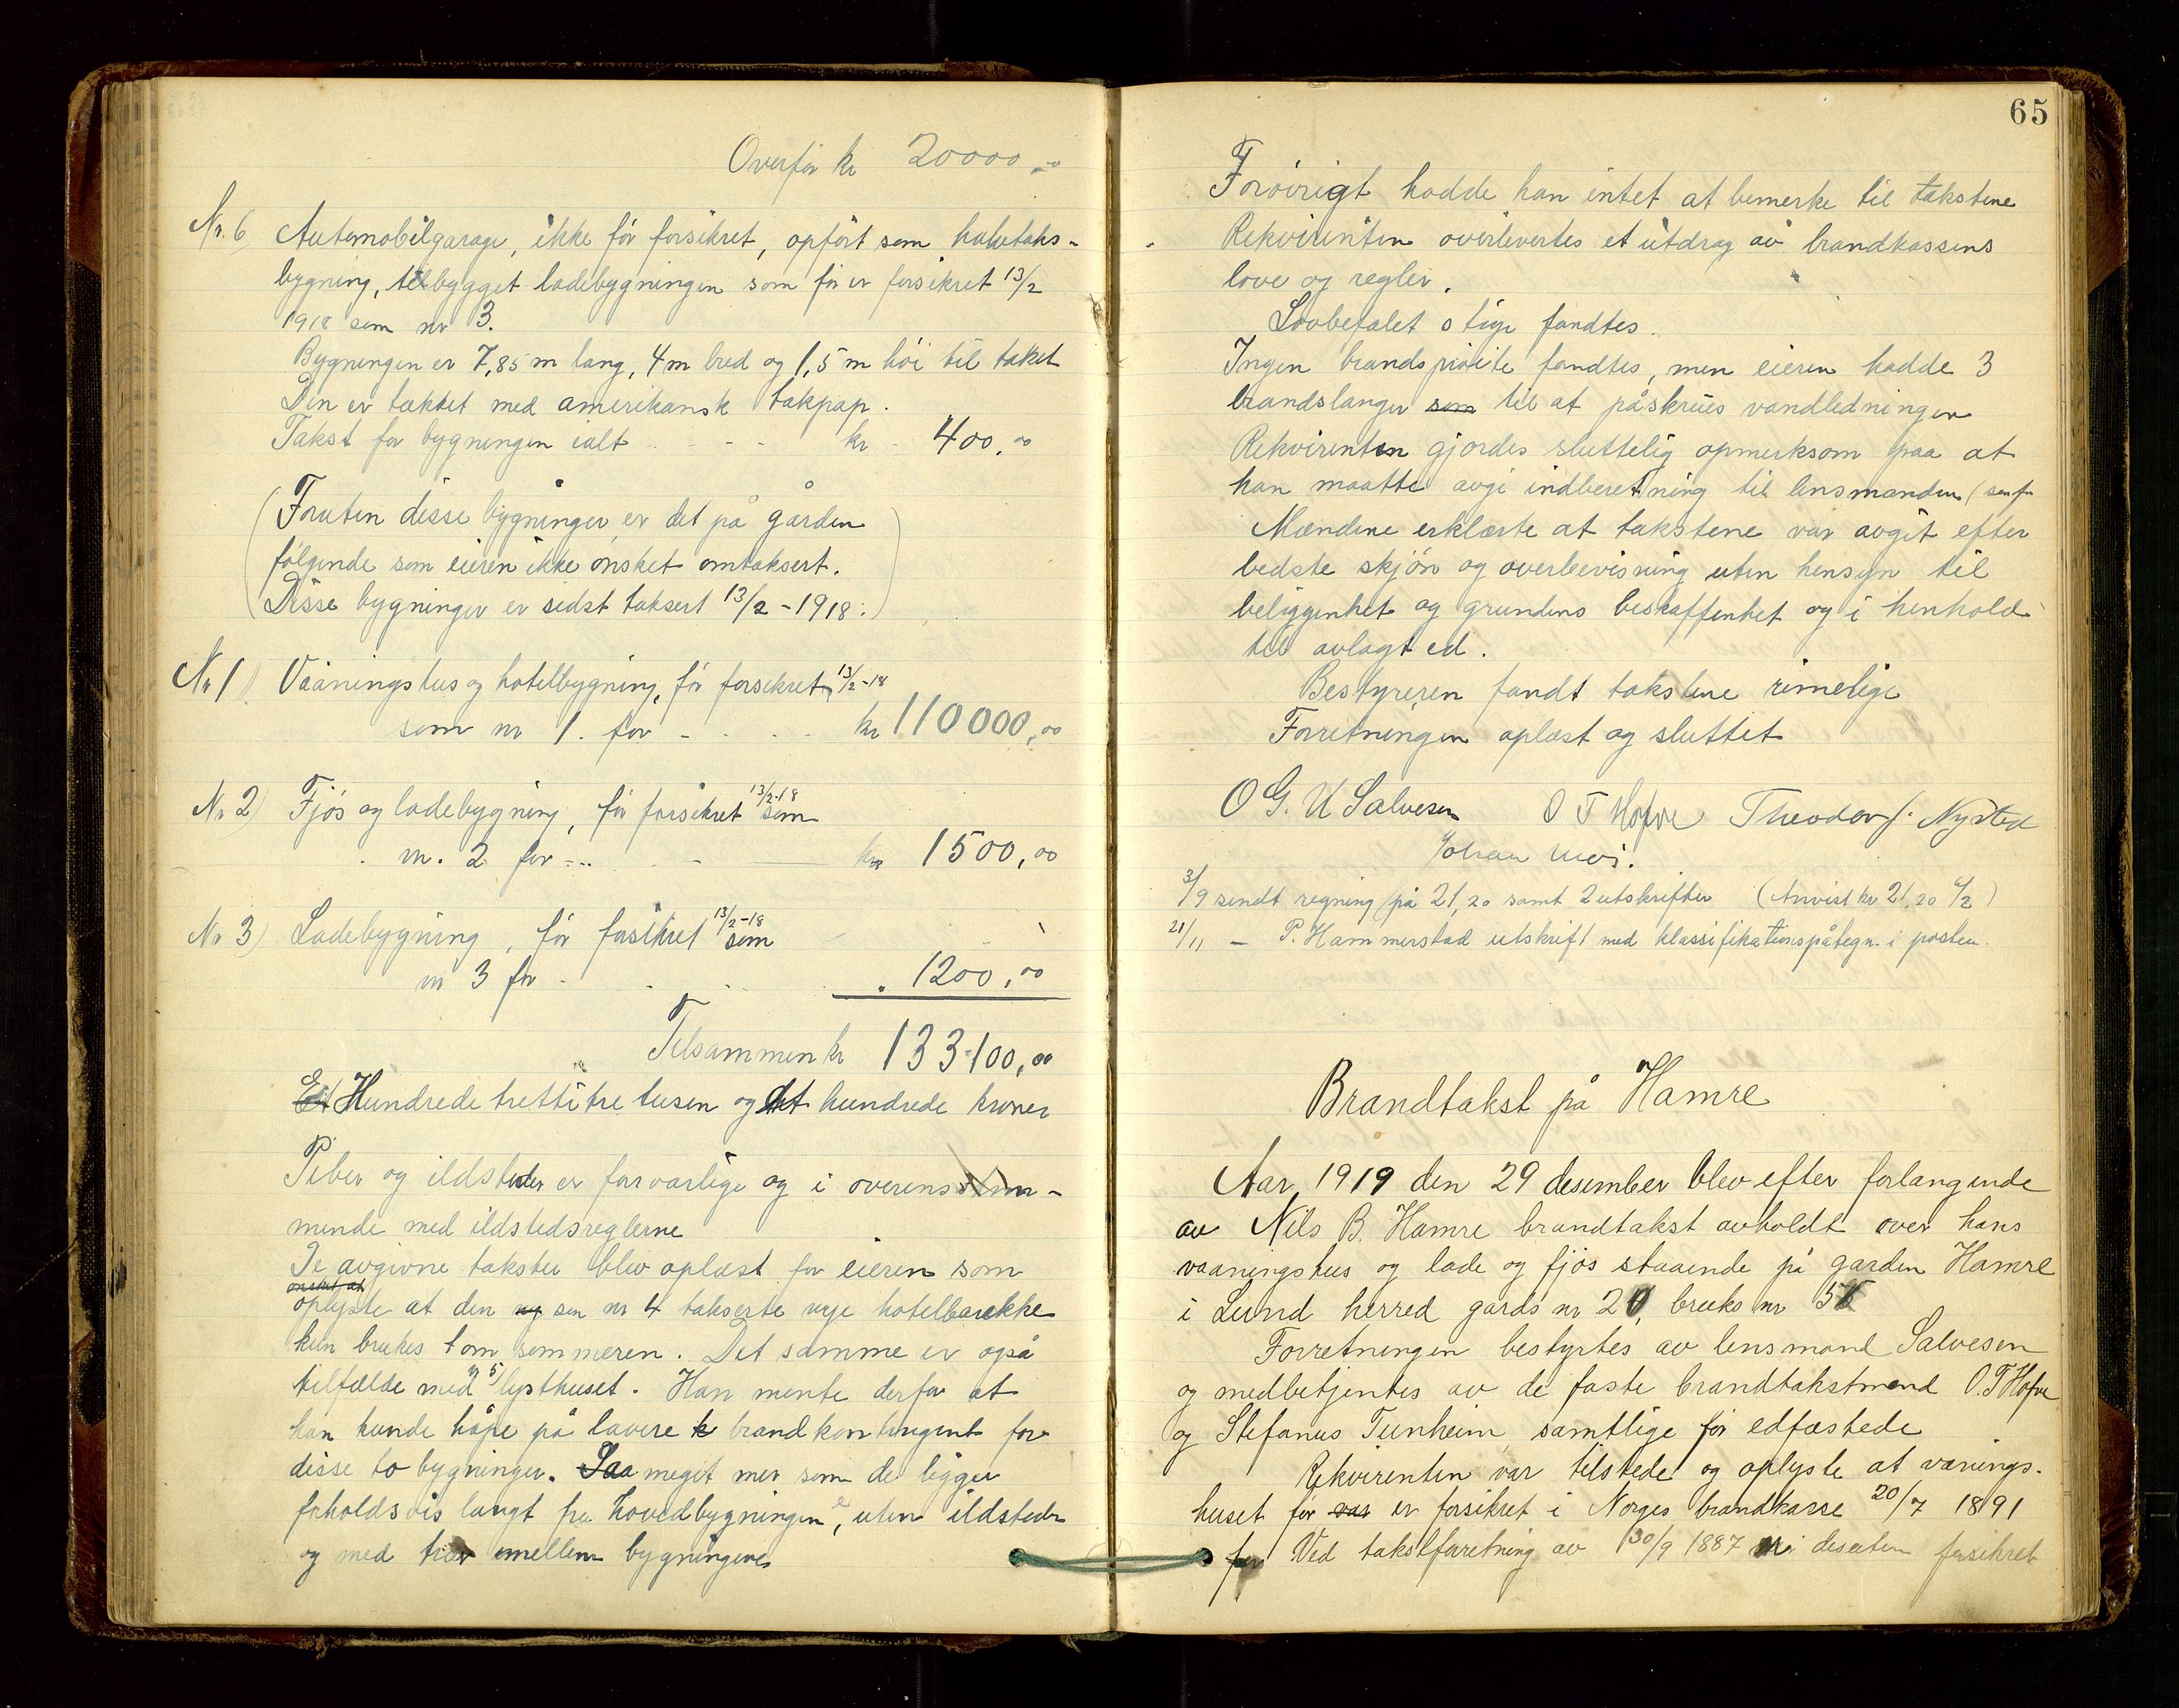 Overfør kr 20000,00
Nr. 6 Automobilgarage, ikke før forsikret, opført som halvtaks-
bygning, tilbygget ladebygningen som før er forsikret 13/2
1918 som nr 3.
Bygningen er 7,85 m lang, 4 m bred og 1,5 m høi til taket
Den er tækket med amerikansk takpap.
Takst for bygningen ialt - - - kr 400,00
(Foruten disse bygninger er det på gården
følgende som eieren ikke ønsket omtaksert.
Disse bygninger er sidst taksert 13/2 - 1918.)
Nr 1) Vaaningshus og hotelbygning, før forsikret 13/2-18
som nr 1. for - - - kr 110000,00
Nr 2) Fjøs og ladebygning, før forsikret 13/2-18 som
nr. 2 for - - - kr 1500,00
Nr 3) Ladebygning, før forsikret 13/2-18 som
nr 3 for - - - 1200,00
Tilsammen kr 133100,00
Et Hundrede trettitre tusen og et hundrede kroner
Piber og ildsteder er forsvarlige og i overensstem-
mende med ildstedsreglerne
De avgivne takster blev oplæst for eieren som
ønsket at
oplyste at den som nr 4 takserte nye hotelbarakke
kun brukes 1 om sommeren. Det samme er også
tilfælde med nr 5 lysthuset. Han mente derfor at
han kunde håpe på lavere brandkontingent for
disse to bygninger. Saa meget mer som de ligger
forholdsvis langt fra hovedbygningen, uten ildsteder
og med trær mellem bygningene
65
Forøvrigt hadde han intet at bemerke til takstene
Rekvirenten overlevertes et utdrag av brandkassens
love og regler.
Lovbefalet stige fandtes.
Ingen brandsprøite fandtes, men eieren hadde 3
brandslanger som til at påskrues vandledningen
Rekvirenten gjordes sluttelig opmerksom paa at
han maatte avgi indberetning til lensmanden (
Mændene erklærte at takstene var avgit efter
bedste skjøn og overbevisning uten hensyn til
beliggenhet og grundens beskaffenhet og i henhold
til avlagt ed.
Bestyreren fandt takstene rimelige
Forretningen oplæst og sluttet
O G. U Salvesen O T Hofve Theodor J. Nysted
Johan Moi.
3/9 sendt regning på 21,20 samt 2 utskrifter (Anvist kr 21,20 /2)
21/11 - P. Hammerstad utskrift med klassifikationspåtegn. i posten.
Brandtakst på Hamre
Aar 1919 den 29 desember blev efter forlangende
av Nils B. Hamre brandtakst avholdt over hans
vaaningshus og lade og fjøs staaende på garden Hamre
i Lund herred gards nr 20, bruks nr 5
Forretningen bestyrtes av lensmand Salvesen
og medbetjentes av de faste brandtakstmend O. T Hofve
og Stefanus Tunheim samtlige før edfæstede
Rekvirenten var tilstede og oplyste at vånings-
huset før var er forsikret i Norges brandkasse 20/7 1891
for Ved takstforretning av 30/9 1887 er desuten forsikret